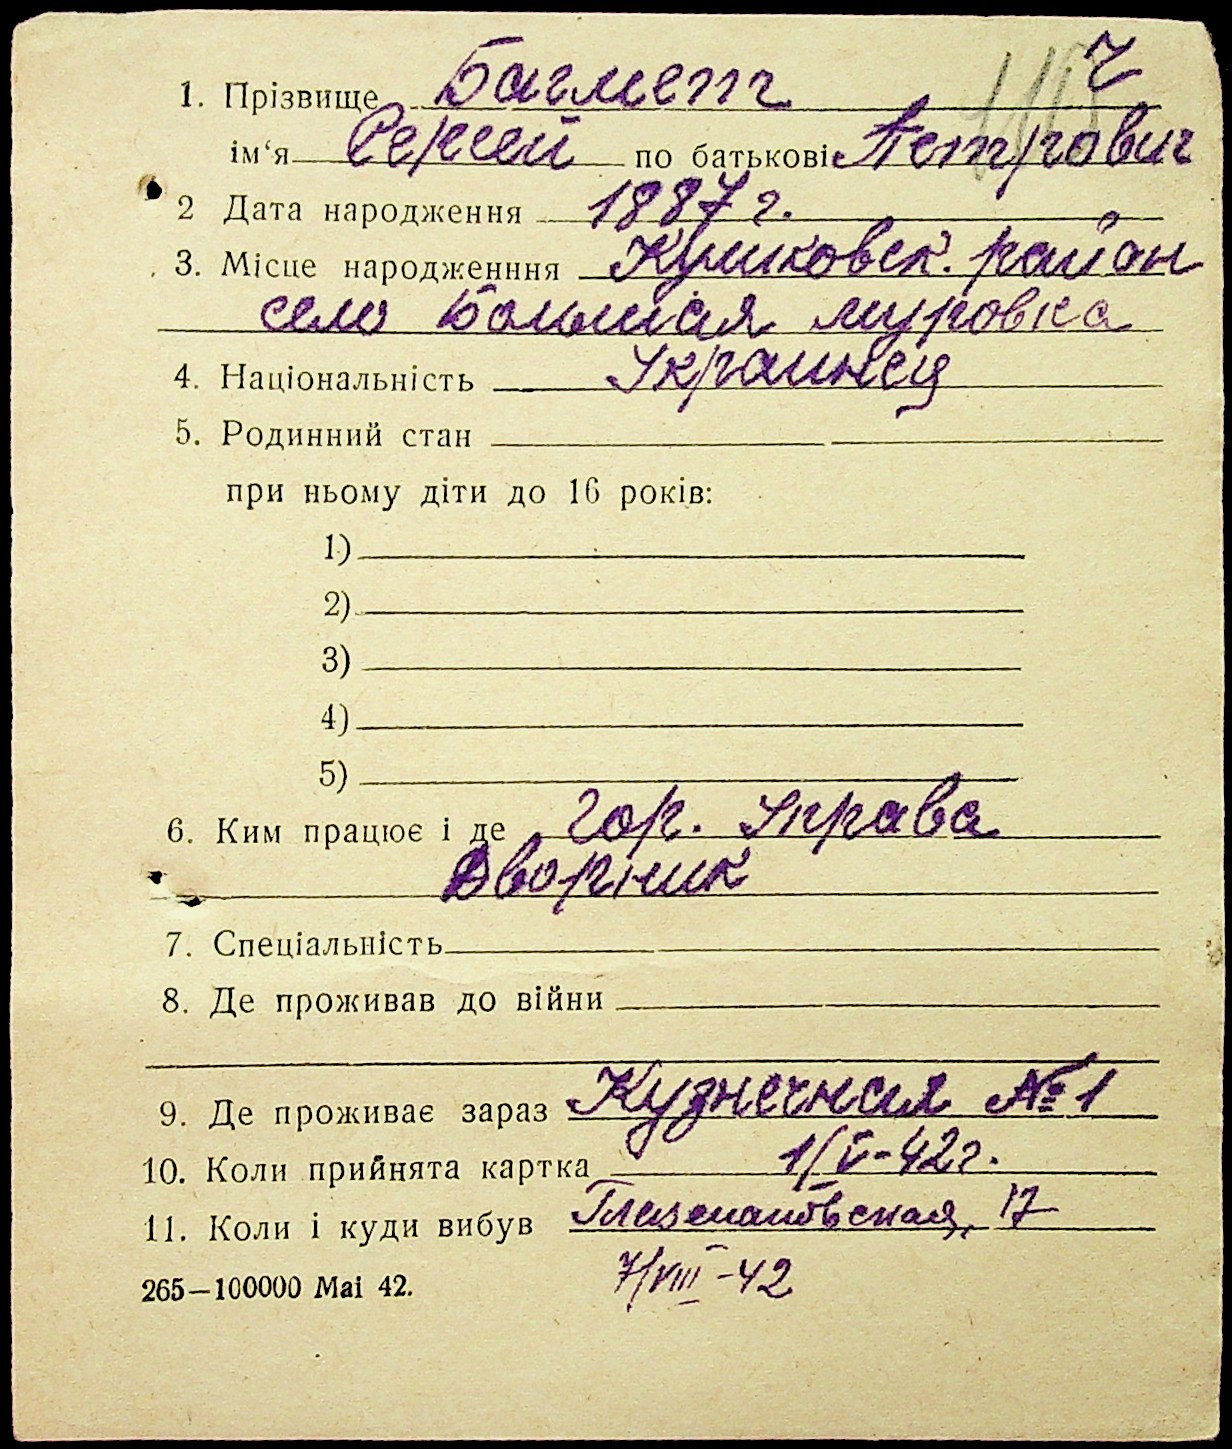 1. Прізвище Багмет Ч
ім'я Сергей по батькові Петрович
2 Дата народження 1887 г.
3. Місце народженння район
село Большая муровка
4. Національність Украинец
5. Родинний стан
при ньому діти до 16 років:
1)
2)
3)
4)
5)
6. Ким працює і де гор. Управа
Дворник
7. Спеціальність
8. Де проживав до війни
9. Де проживає зараз Кузнечная №1
10. Коли прийнята картка 1/V-42г.
11. Коли і куди вибув 17
7/VIII-42
265—100000 Mai 42.